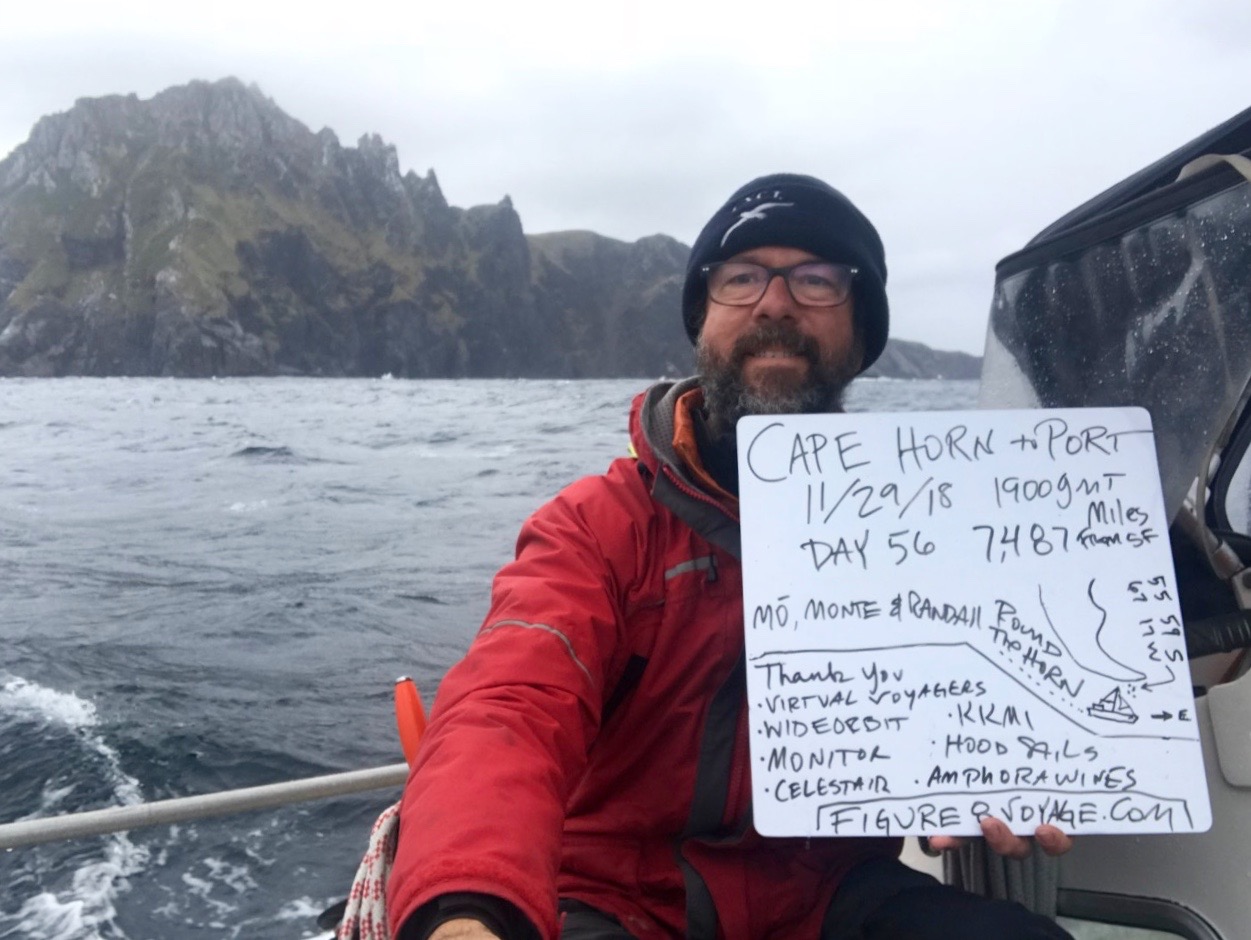 CAPE HORN to PORT
11/29/18 1900gMT
DAY 56 7,487 Miles from SF
MŌ, MONTE & RANDAll ROUND The HORN
55 59 S
67 17 W
→ E
Thank You
·VIRTUAL VOYAGERS
·WIDEORBIT ·KKMI
·MONITOR ·HOOD SAILS
·CELESTAIR ·AMPHORA WINES
FIGURE 8 VOYAGE.COM